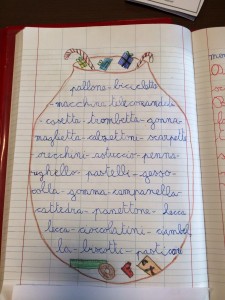 pallone - bicicletta
- macchina telecomandata
- casetta - trombetta - gonna
maglietta - calzettoni - scarpette
orecchini - astuccio - penna -
righello - pastelli - gesso -
colla - gomma - campanella -
cattedra - panettone - lecca
lecca - cioccolatini - ciambel
la - biscotti - pasticcini